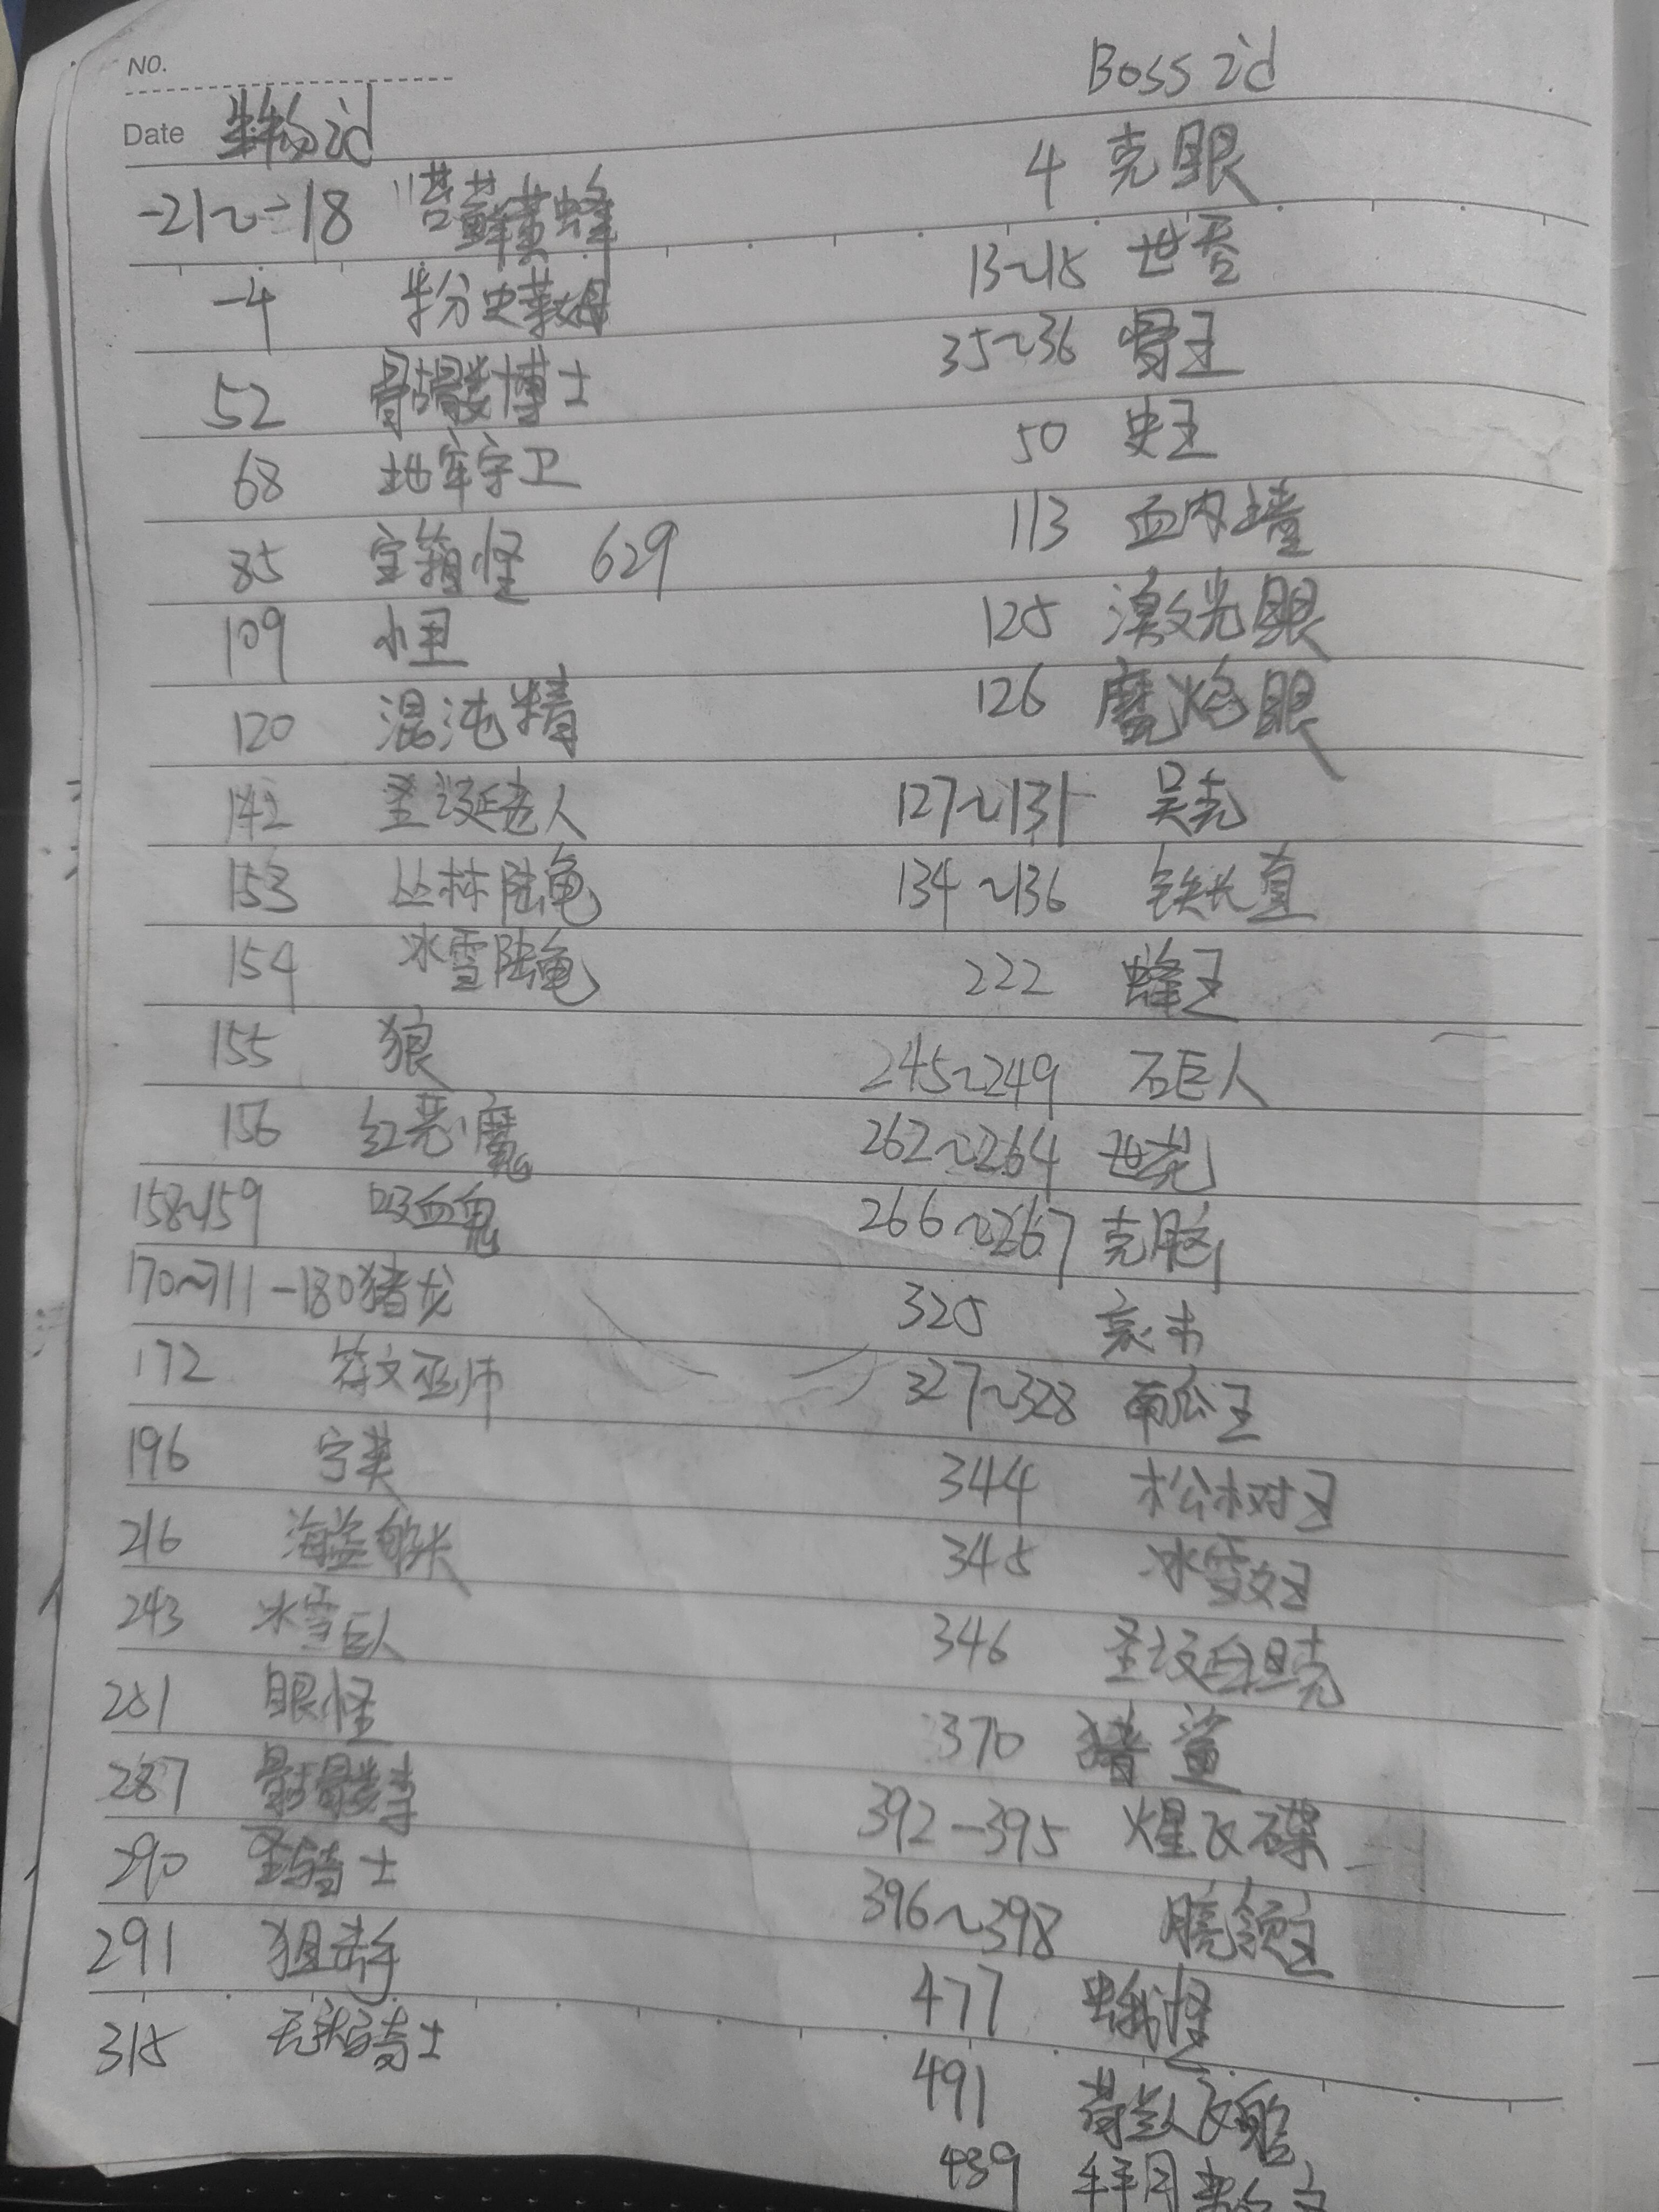 NO.
Date 生物id
-21~-18 苔藓黄蜂
-4 粉史莱姆
52 骷髅博士
68 地牢守卫
85 宝箱怪 629
109 小丑
120 混沌精
142 圣诞老人
153 丛林陆龟
154 冰雪陆龟
155 狼
156 红恶魔
158~159 吸血鬼
170~711-180猪龙
172 符文巫师
196 宁芙
216 海盗船长
243 冰雪巨人
281 眼怪
287 骷髅李
290 圣骑士
291 狙击手
315 无头骑士
Boss id
4 克眼
13~15 世吞
35~36 骨王
50 史王
113 血肉墙
125 激光眼
126 魔焰眼
127~131 吴克
134~136 铁长直
222 蜂王
245~249 石巨人
262~264 世花
266~267 克脑
325 哀木
327~328 南瓜王
344 松树王
345 冰雪女王
346 圣诞坦克
370 猪鲨
392-395 火星飞碟
396~398 月亮领主
477 蛾怪
491 荷兰人飞船
439 拜月教